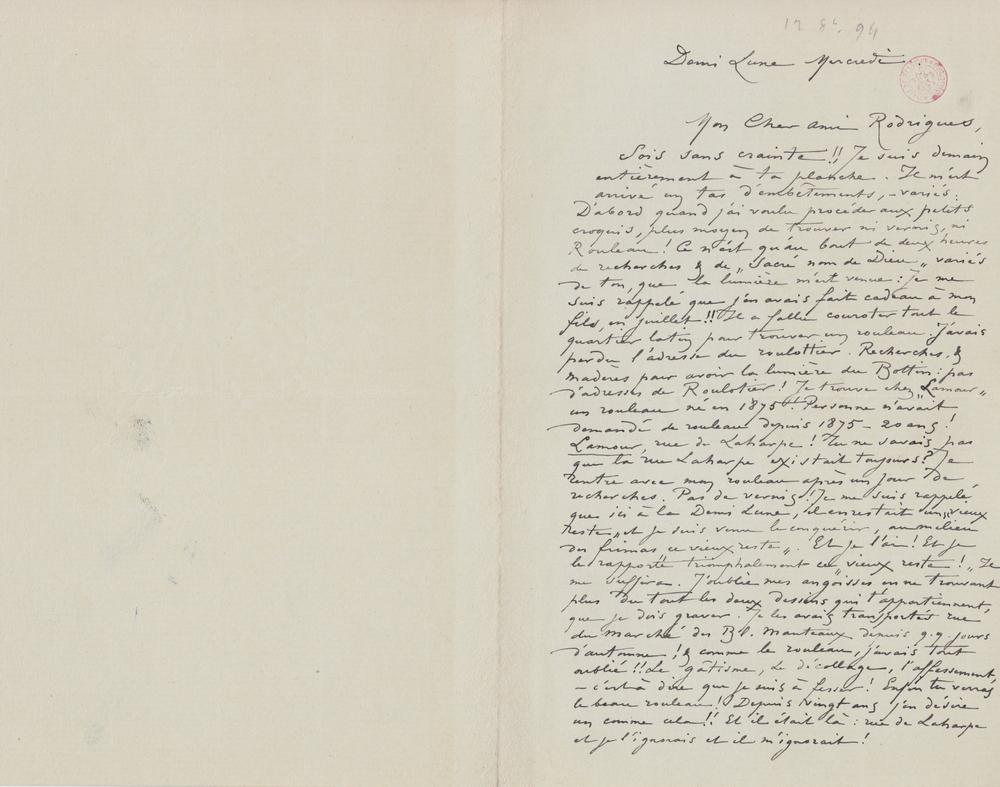 12 8bre 94
Demi Lune Mercredi
Mon Cher ami Rodrigues,
Sois sans crainte !! Je suis demain
entièrement à ta planche. Il m'est
arrivé un tas d'embêtements, – variés.
D'abord quand j'ai voulu procéder aux petits
croquis, plus moyen de trouver ni vernis, ni
Rouleau ! Ce n'est qu'au bout de deux heures
de recherches & de „Sacré nom de Dieu„ variés
de ton, que la lumière m'est venue : Je me
suis rappelé que j'en avais fait cadeau à mon
filo, en juillet !! Il a fallu couroter tout le
quartier latin pour trouver un rouleau. J'avais
perdu l'adresse du roulottier. Recherches, &
madères pour avoir la lumière du Bottin : pas
d'adresses de Roulotier ! Je trouve chez „Lamour„
un rouleau né en 1875 ! Personne n'avait
demandé de rouleau depuis 1875 – 20 ans !
Lamour, rue de Laharpe ! Tu ne savais pas
que la rue Laharpe existait toujours ? Je
rentre avec mon rouleau après un jour de
recherches. Pas de vernis ! Je me suis rappelé
que ici à la Demi Lune, il en restait un „vieux
reste„ et je suis venu le conquérir, au milieu
des frimas, ce vieux reste„. Et je l'ai ! Et je
le rapporte triomphalement ce „vieux reste ! „ Il
me suffira. J'oublie mes angoisses en ne trouvant
plus du tout les deux dessins qui t'appartiennent,
que je dois graver. Je les avais transportés rue
du Marché des Bl. Manteaux depuis q.q. jours
d'automne ! & comme le rouleau, j'avais tout
oublié !! Le gâtisme, le décollage, l'affessement,
– c'est à dire que je suis à fesser ! Enfin tu verras
le beau rouleau ! Depuis vingt ans j'en désire
un comme cela !! Et il était là : rue de Laharpe
et je l'ignorais et il m'ignorait !